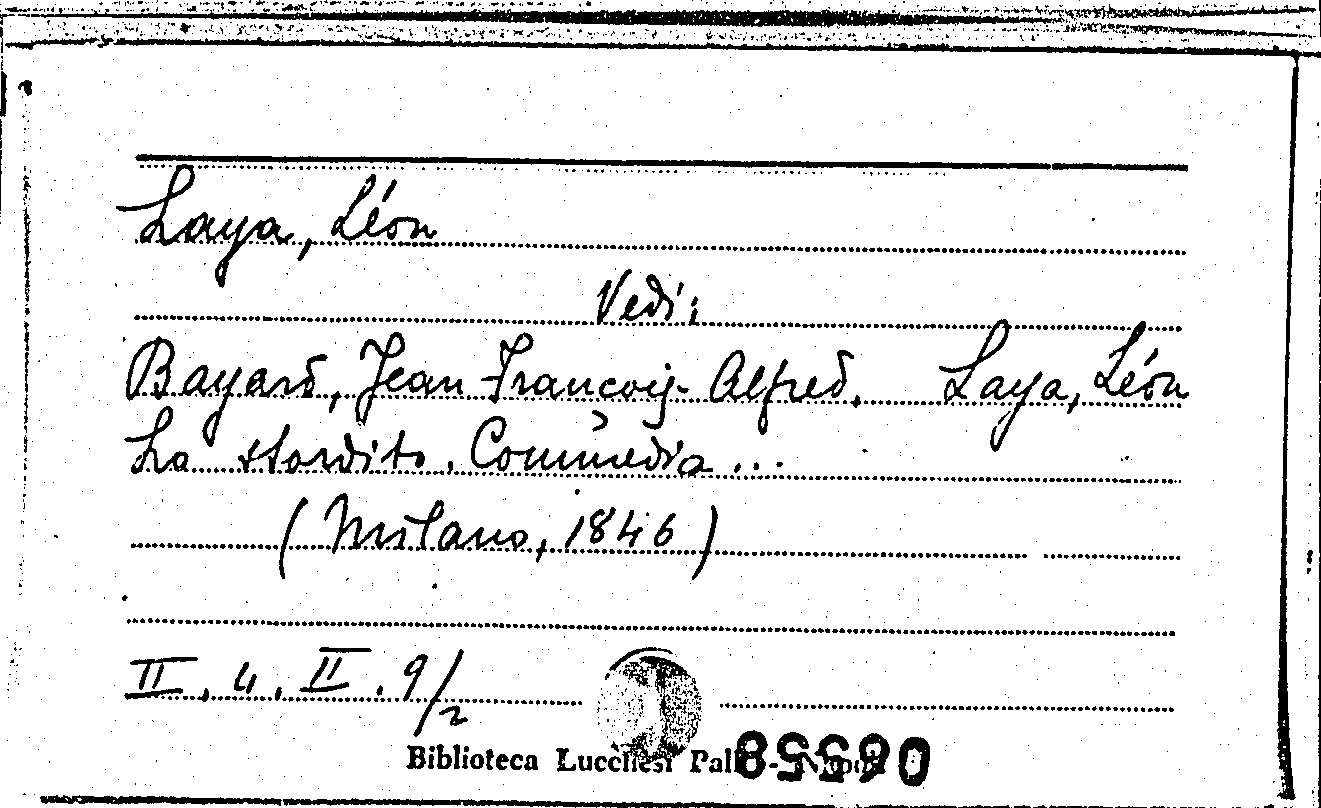 Laya, Léon
Vedi:
Bayard, Jean-François-Alfred. Laya, Léon
Lo stordito. Commedia...
(Milano, 1846)
II. 4. II. 9/2
Biblioteca Lucchesi Palli - Napoli